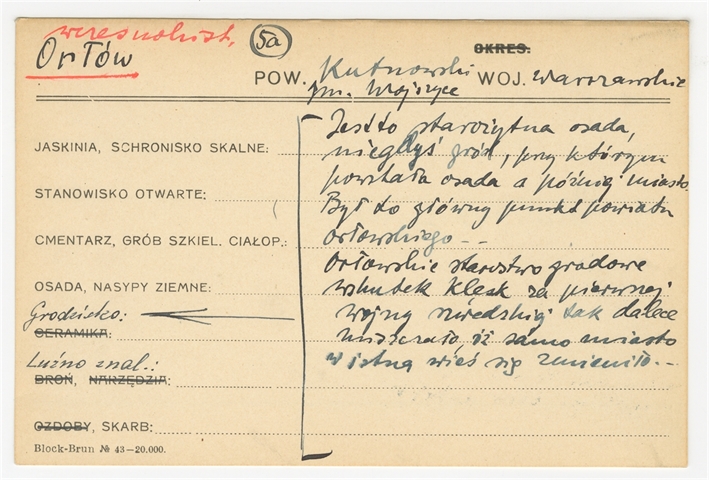 wczesnohist.
Orłów
5a
OKRES.
POW. Kutnowski WOJ. Warszawskie
gm. Wojszyce
JASKINIA, SCHRONISKO SKALNE:
STANOWISKO OTWARTE:
CMENTARZ, GRÓB SZKIEL. CIAŁOP.:
OSADA, NASYPY ZIEMNE:
Grodzisko:
CERAMIKA:
Luźno znal.:
BROŃ, NARZĘDZIA:
OZDOBY, SKARB:
Block-Brun № 43—20.000.
Jest to starożytna osada,
niegdyś gród, przy którym
powstała osada a później miasto.
Był to główny punkt powiatu
orłowskiego --
Orłowskie starostwo grodowe
wskutek klęsk za pierwszej
wojny szwedzkiej tak dalece
niszczało, iż samo miasto
w istną wieś się zmieniło.--